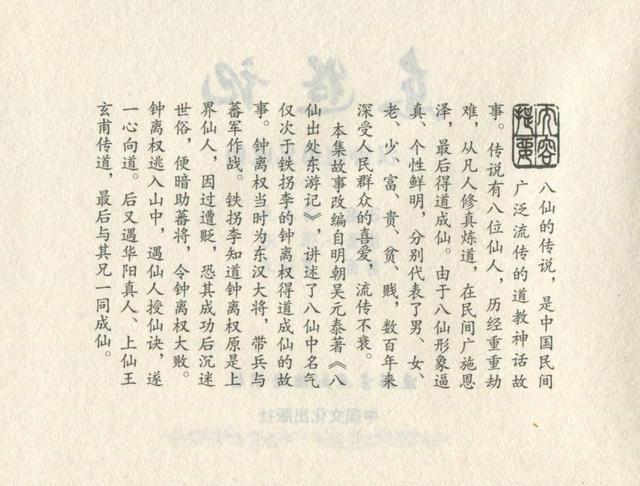 内容提要
八仙的传说，是中国民间
广泛流传的道教神话故
事。传说有八位仙人，历经重重劫
难，从凡人修真炼道，在民间广施恩
泽，最后得道成仙。由于八仙形象逼
真、个性鲜明，分别代表了男、女、
老、少，富、贵、贫、贱，数百年来
深受人民群众的喜爱，流传不衰。
本集故事改编自明朝吴元泰著《八
仙出处东游记》，讲述了八仙中名气
仅次于铁拐李的钟离权得道成仙的故
事。钟离权当时为东汉大将，带兵与
蕃军作战。铁拐李知道钟离权原是上
界仙人，因过遭贬，恐其成功后沉迷
世俗，便暗助蕃将，令钟离权大败。
钟离权逃入山中，遇仙人授仙诀，遂
一心向道。后又遇华阳真人、上仙王
玄甫传道，最后与其兄一同成仙。
东游记
中国文化出版社